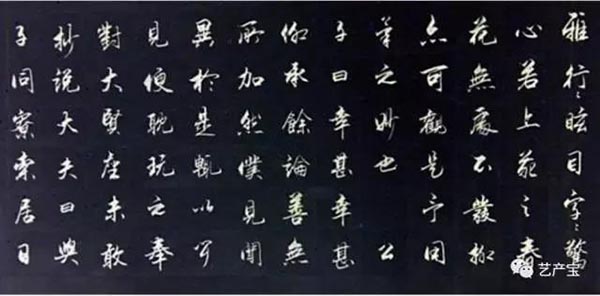 雅行〻眩目字〻驚
心若上苑之春
花無處不發抑
亦可觀是予用
筆之妙也 公
子曰幸甚幸甚
仰承餘論善無
所加然僕見聞
異於是輒以聞
見便耽玩之奉
對大賢座未敢
抄說大夫曰與
子同寮索居日
艺产宝